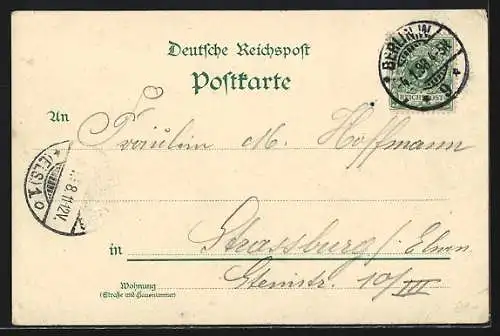 Deutsche Reichspost
Postkarte
BERLIN.W
9
REICHSPOST
An
Fräulein M. Hoffmann
(ELS) 1 o
8.11-12V.
in Strassburg / Elsass
Steinstr. 10/III
Wohnung
(Straße und Hausnummer)